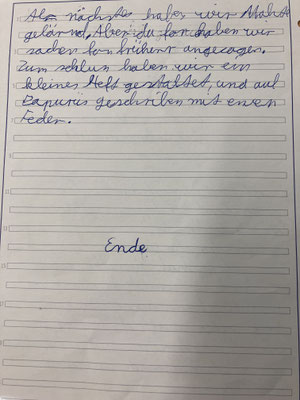 Als nächstes haben wir
gelärnd. Aber du for haben wir
sachen fon früher angezogen.
Zum schluss haben wir ein
kleines Heft gestaltet, und auf
Papurüs geschriben mit einen
Feder.
Ende